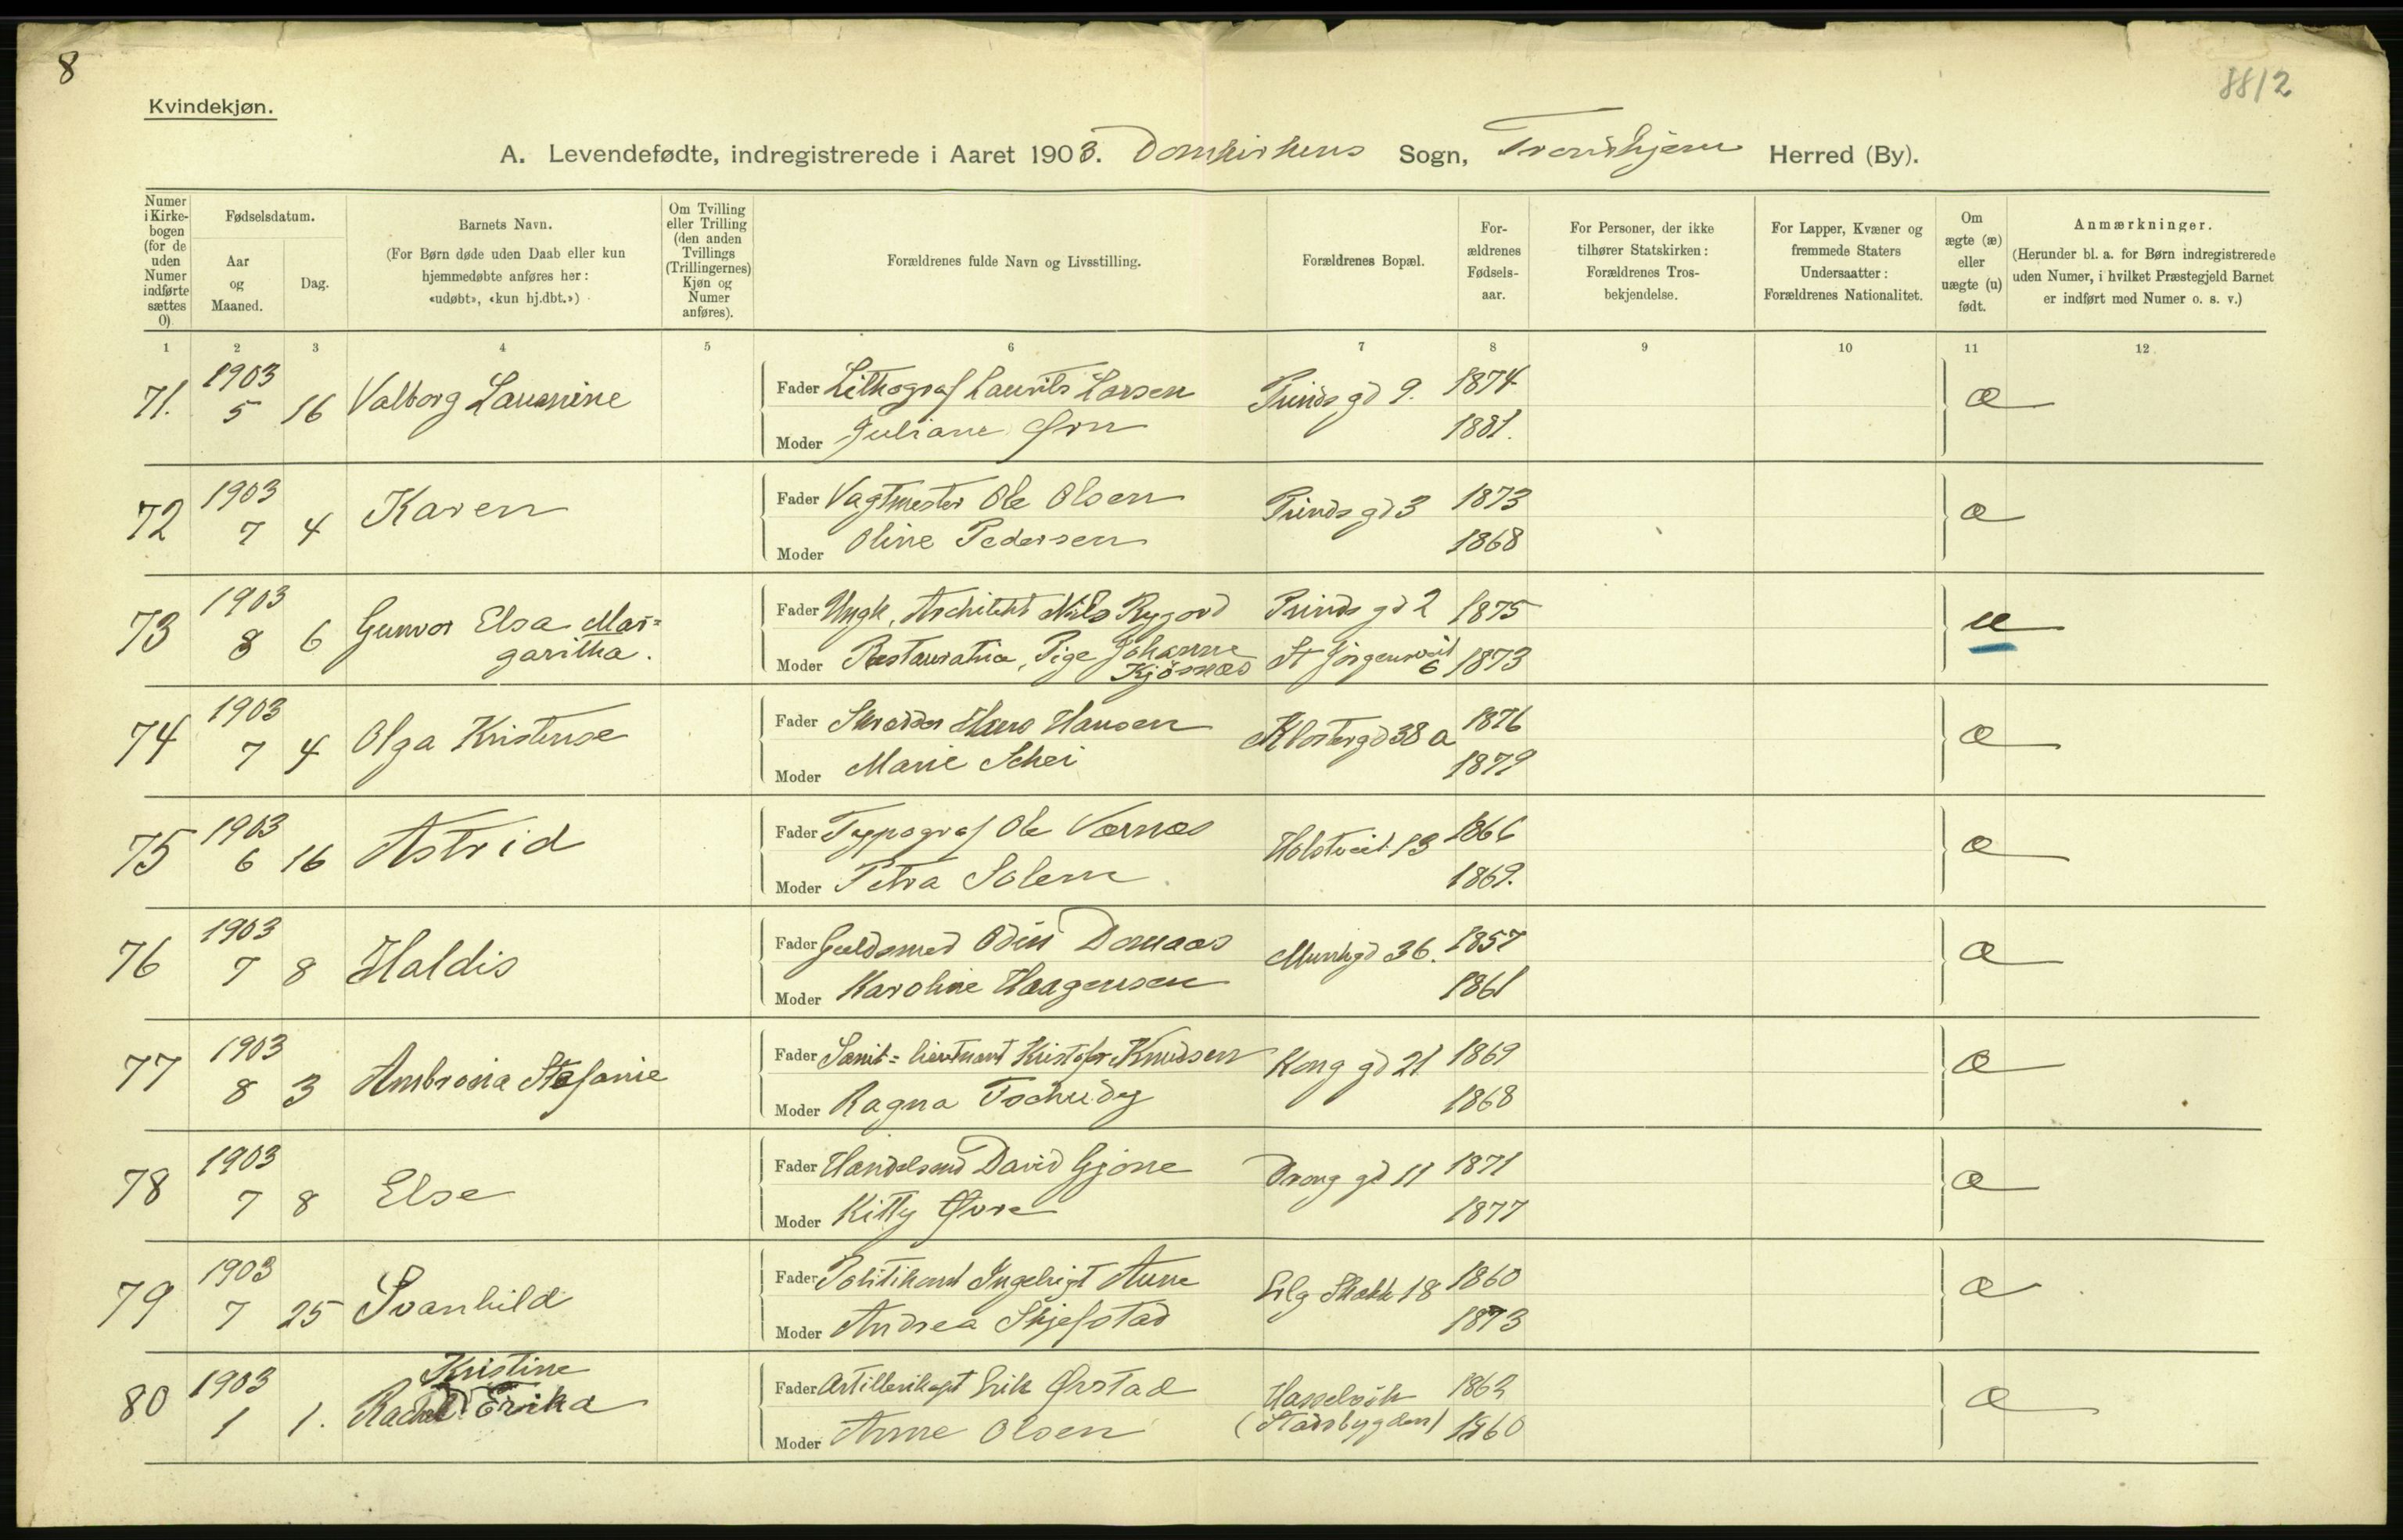 8
8812
Kvindekjøn.
A. Levendefødte, indregistrerede i Aaret 1903. Domkirkens Sogn, Trondhjem Herred (By).
Numer i Kirkebogen (for de uden Numer indførte sættes 0)
Fødselsdatum.
Aar og Maaned.
Dag.
Barnets Navn.
(For Børn døde uden Daab eller kun hjemmedøbte anføres her: «udøbt», «kun hj.dbt.»)
Om Tvilling eller Trilling (den anden Tvillings (Trillingernes) Kjøn og Numer anføres).
Forældrenes fulde Navn og Livsstilling.
Forældrenes Bopæl.
Forældrenes Fødselsaar.
For Personer, der ikke tilhører Statskirken: Forældrenes Trosbekjendelse.
For Lapper, Kvæner og fremmede Staters Undersaatter: Forældrenes Nationalitet.
Om ægte (æ) eller uægte (u) født.
Anmærkninger.
(Herunder bl. a. for Børn indregistrerede uden Numer, i hvilket Præstegjeld Barnet er indført med Numer o. s. v.)
1 2 3 4 5 6 7 8 9 10 11 12
71. 1903 5 16 Valborg Laurnine Fader Lithograf Laurits Larsen Prinds gd 9. 1874 æ
Moder Juliane Ørn 1881.
72 1903 7 4 Karen Fader Vagtmester Ole Olsen Prinds gd 3 1873 æ
Moder Oline Pedersen 1868
73 1903 8 6 Gunvor Elsa Mar=garitha. Fader Ungk, Architekt Nils Rygård Prinds gd 2 1875 u
Moder Restauratrice, Pige Johanne Kjösnæs St Jørgensveit 6 1873
74 1903 7 4 Olga Kristense Fader Skrædder Hans Hansen Klostergd 38 a 1876 æ
Moder Marie Schei 1879
75 1903 6 16 Astrid Fader Typograf Ole Værnæs Holstveit 13 1866 æ
Moder Petra Solem 1869.
76 1903 7 8 Haldis Fader Guldsmed Odin Domaas Munkgd 36. 1857 æ
Moder Karoline Haagensen 1861
77 1903 8 3 Ambrosia Stefanie Fader Sanit=lieutnant Kristofer Knudsen Kong gd 21 1869 æ
Moder Ragna Tschudy 1868
78 1903 7 8 Else Fader Handelsmd David Gjone Drong gd 11 1871 æ
Moder Kitty Øvre 1877
79 1903 7 25 Svanhild Fader Politikonst Ingebrigt Aune Elg Skakk 18 1860 æ
Moder Andrea Skjefstad 1873
80 1903 1 1. Kristine Rachel Erika Fader Artillerikapt Erik Ørstad Hasselvik (Stadsbygden) 1863 æ
Moder Anne Olsen 1860